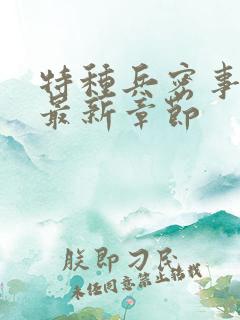 特种兵密事
最新章节
朕即刁民
未经同意禁止转载